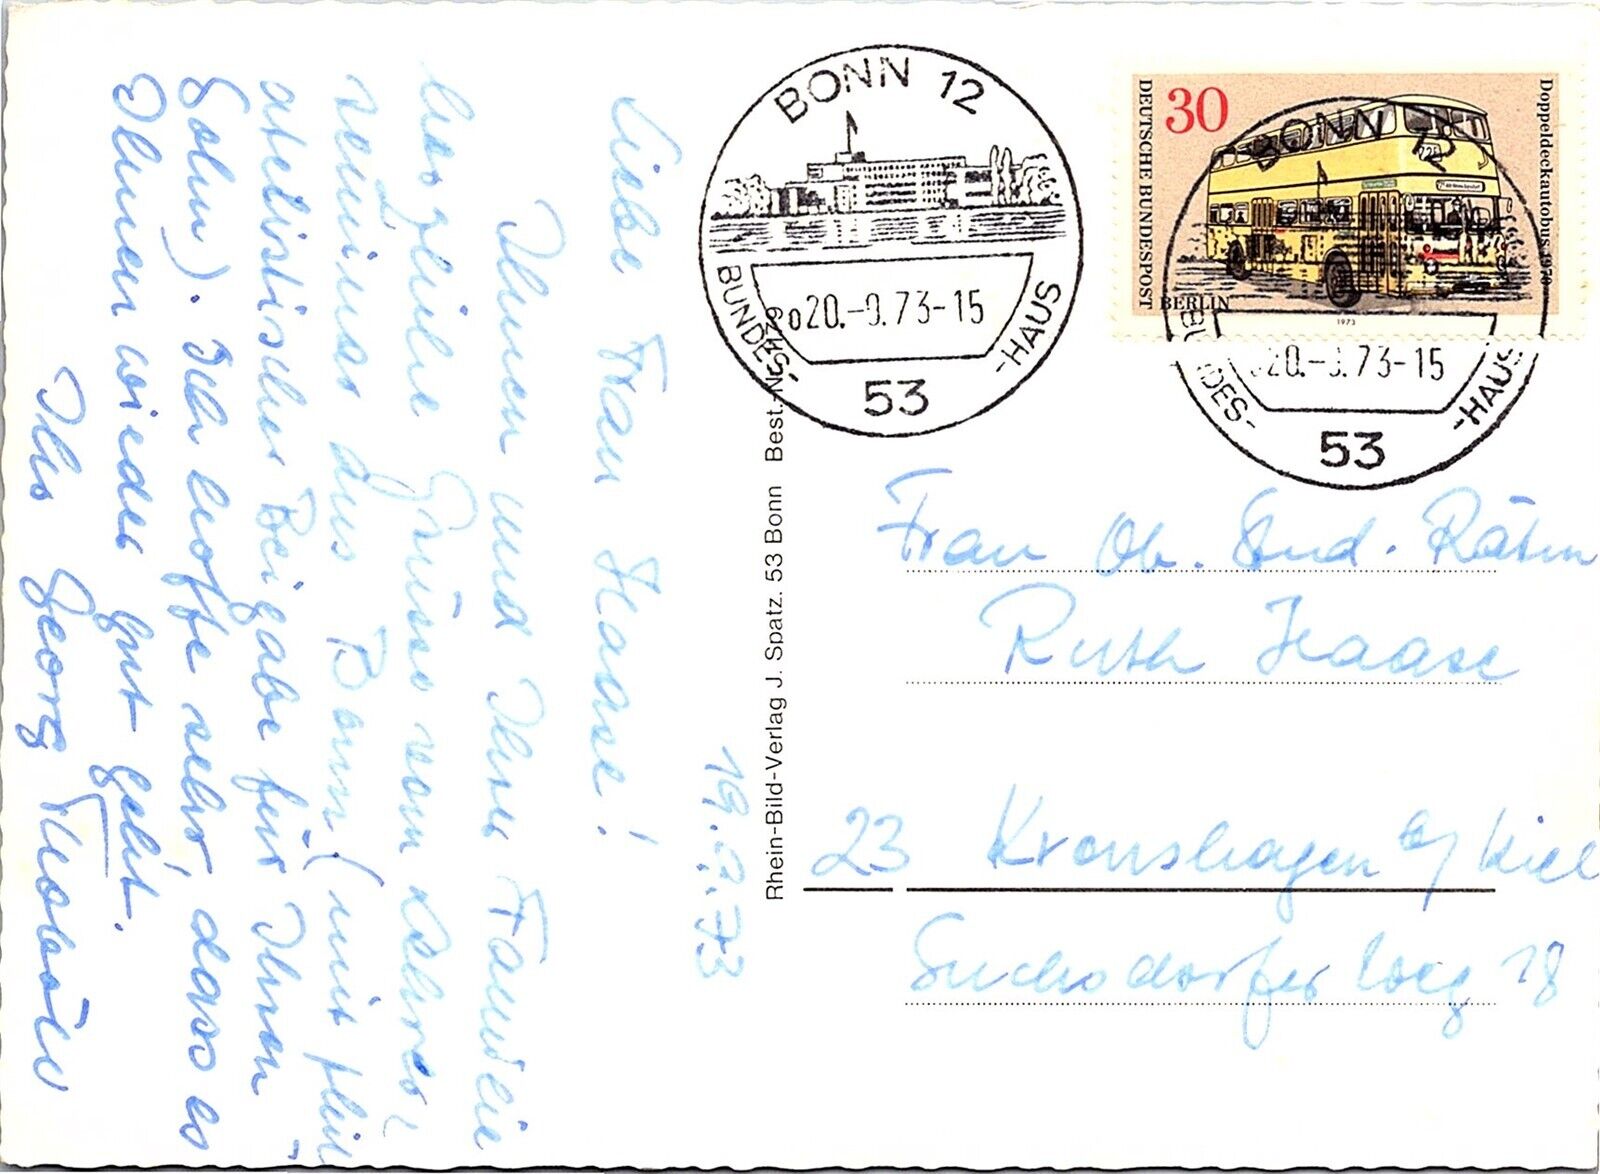 19.9.73
Liebe Frau Haase!
Ihnen und Ihrer Familie
herzliche Grüsse von
seiner aus Bonn (mit
Beigabe für Ihren
Sohn). Ich hoffe sehr, dass es
Ihnen wieder gut geht.
Ihr Georg
Rhein-Bild-Verlag J. Spatz. 53 Bonn Best.-Nr. 479
BONN 12
20.-9.73-15
BUNDES- -HAUS
53
30
DEUTSCHE BUNDESPOST BERLIN
Doppeldeckautobus 1970
1973
BONN 12
20.-9.73-15
BUNDES- -HAUS
53
Frau Ob. Stud. Rätin
Ruth Haase
23 Kronshagen b/ Kiel
Suchsdorfer Weg 18